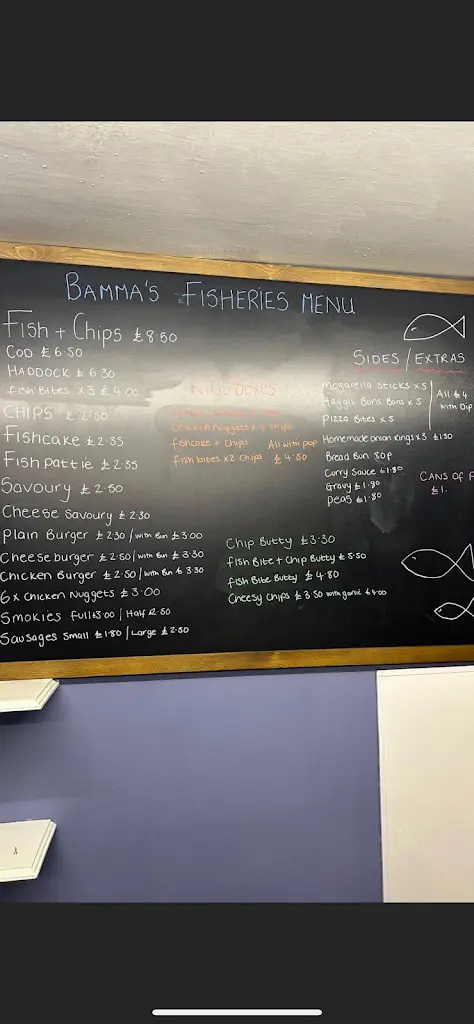 BAMMA'S FISHERIES MENU
Fish + Chips £8.50
COD £6.50
HADDOCK £6.30
fish Bites x3 £4.00
CHIPS £2.50
Fishcake £2.35
Fish pattie £2.35
Savoury £2.50
Cheese Savoury £2.30
Plain Burger £2.30/with Bun £3.00
Cheeseburger £2.50/with Bun £3.30
Chicken Burger £2.50/with Bun £3.30
6x Chicken Nuggets £3.00
Smokies full £3.00/Half £2.50
Sausages Small £1.80/Large £2.50
KIDS BOXES
Chicken Nuggets x4 Chips
fishcake + Chips All with pop
fish bites x2 Chips £4.50
Chip Butty £3.30
fish Bite + Chip Butty £5.50
fish Bite Butty £4.80
Cheesy Chips £3.50 with garlic £4.00
SIDES/EXTRAS
Mozarella Sticks x5
Haggis Bons Bons x5
Pizza Bites x5
All £4
with Dip
Homemade onion Rings x3 £1.50
Bread Bun 80p
Curry Sauce £1.80
Gravy £1.80
Peas £1.80
CANS OF
£1.